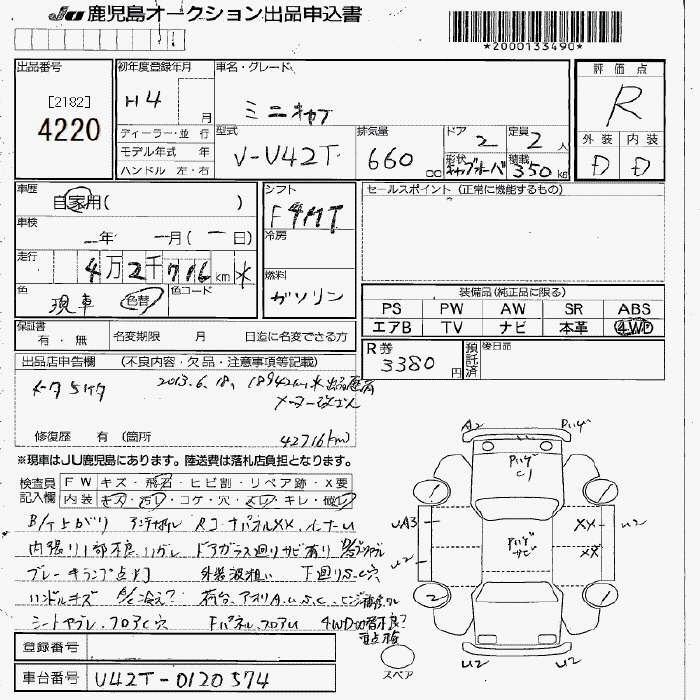 JU 鹿児島オークション出品申込書
*2000133490*
出品番号
[2182]
4220
初年度登録年月
H4
月
ディーラー・並 行
モデル年式 年
ハンドル 左・右
車名・グレード
ミニキャブ
型式
V-U42T
排気量
660
cc
ドア
2
定員
2
人
形状
キャブオーバ
積載
350
kg
評価点
R
外装 内装
D D
車歴
自家用( )
車検
年 月 ( 日)
走行
4万2千716km *
色
現車 色替
色コード
シフト
F4MT
冷房
燃料
ガソリン
セールスポイント (正常に機能するもの)
装備品(純正品に限る)
PS PW AW SR ABS
エアB TV ナビ 本革 4WD
R券
3380
円
預託済
後日品
保証書
有・無
名変期限 月 日迄に名変できる方
出品店申告欄 (不良内容・欠品・注意事項等記載)
メータ5ケタ
2013.6.18, 18942km
メーター改ざん
42716km)
修復歴 有 (箇所
※現車はJU鹿児島にあります。陸送費は落札店負担となります。
検査員記入欄
FW キズ・飛石・ヒビ割・リペア跡・X要
内装 キズ・汚レ・コゲ・穴・スレ・キレ・破レ
A2
バンゲ
C1
サビ
UA3
U2
XX
U2
XX
U2
1
1
2
1
U2
U2
スペア
内張り1部不良
ドラガラス廻りサビ有り
ブレーキランプ点灯
外装波粗い
下廻りS.C穴
ハンドルキズ
シートヤブレ、フロアC穴
FパネルフロアU
4WD切替不良?
要点検
登録番号
車台番号
U42T-0120574